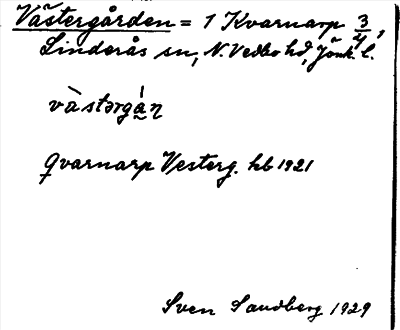 Västergården = 1 Kvarnarp 3/4,
Linderås sn, N. Vedbo hd, Jönk. l.
våstərgá̱n
Qvarnarp Vesterg. hb 1921
Sven Sandberg 1929